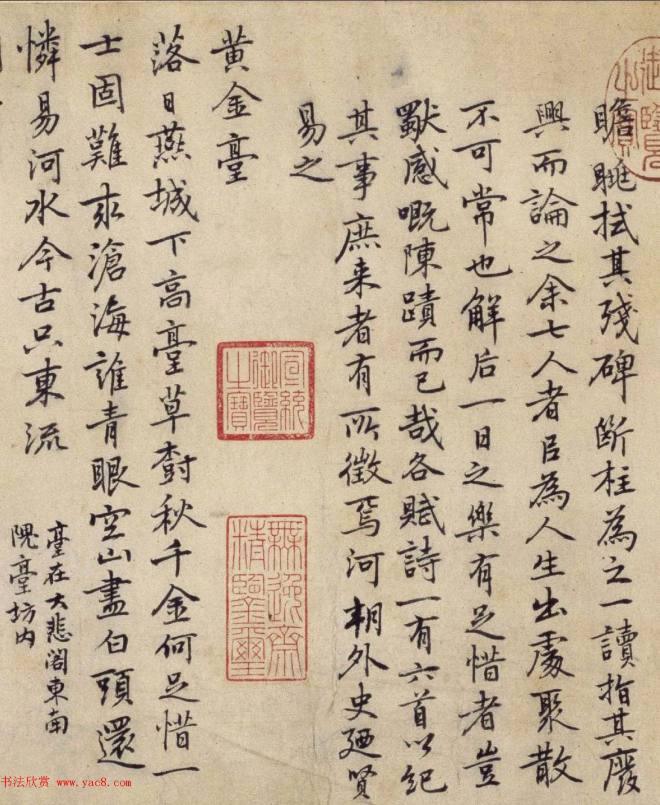 瞻眺拭其殘碑断柱為之一讀指其廢
興而論之余七人者以為人生出處聚散
不可常也解后一日之樂有足惜者豈
獨感嘅陳蹟而已哉各賦詩一有六首以紀
其事庶来者有所徵焉河朔外史廼賢
易之
黄金臺
落日燕城下高臺草樹秋千金何足惜一
士固難求滄海誰青眼空山盡白頭還
憐易河水今古只東流
臺在大悲閣東南
隗臺坊内
宣統
御覽
之寶
無逸齋
精鑒璽
书法欣赏 www.yac8.com